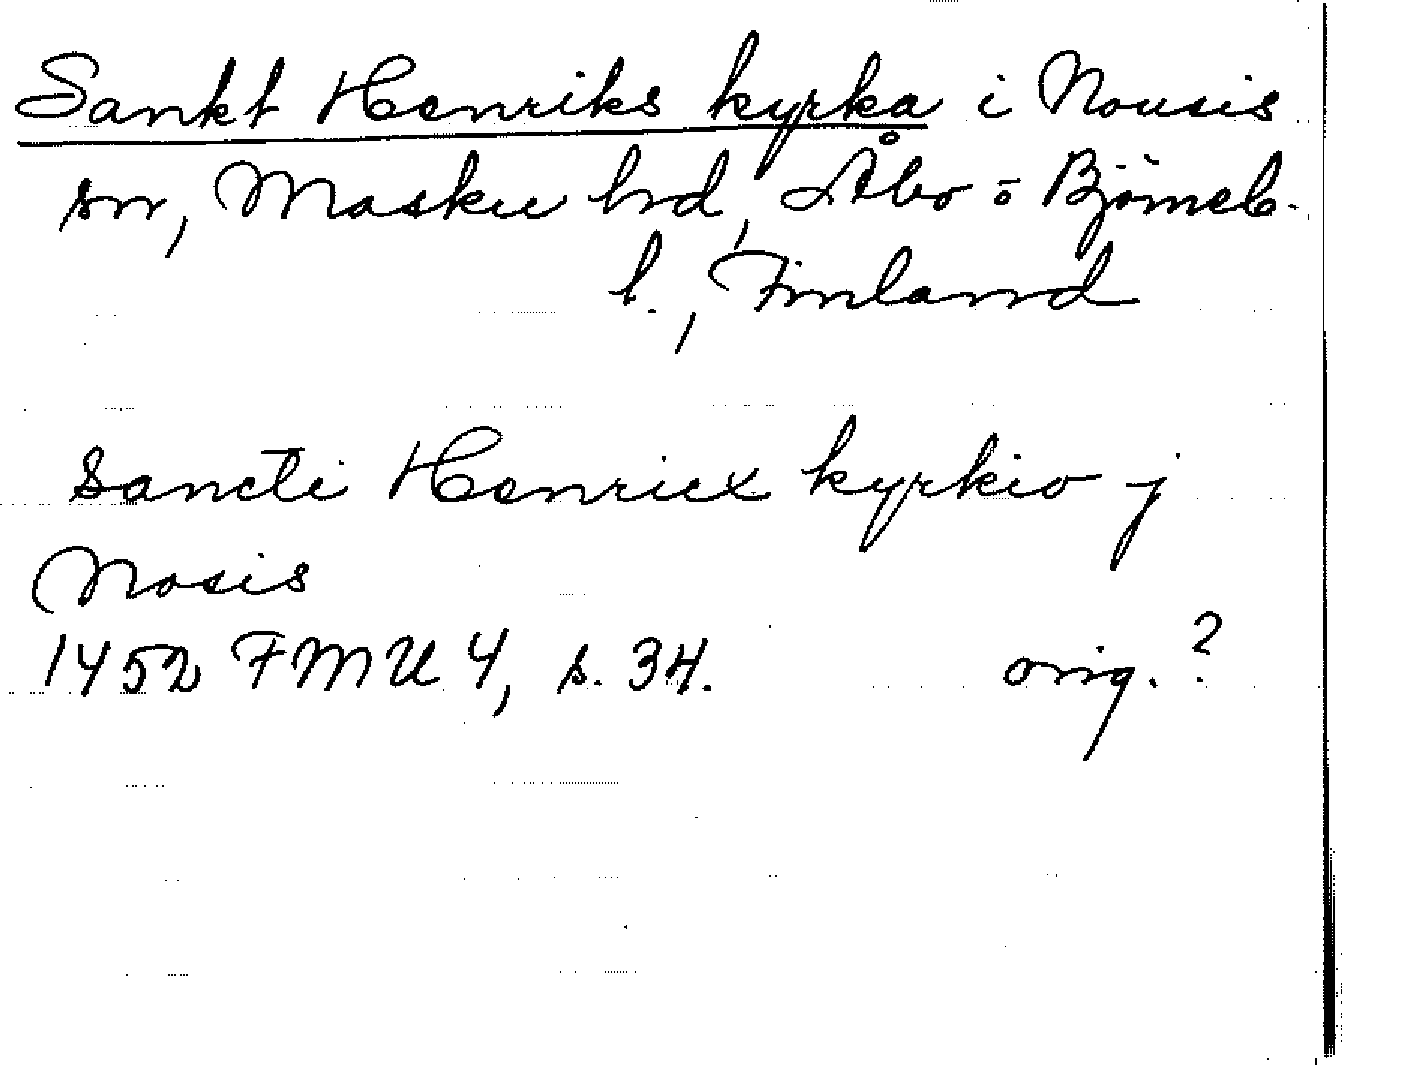 Sankt Henriks kyrka i Nousis
sn, Masku hd, Åbo o Björneb.
l., Finland
Sancti Henricx kyrkio j
Nosis
1452 FMU 4, s. 34. orig. ?